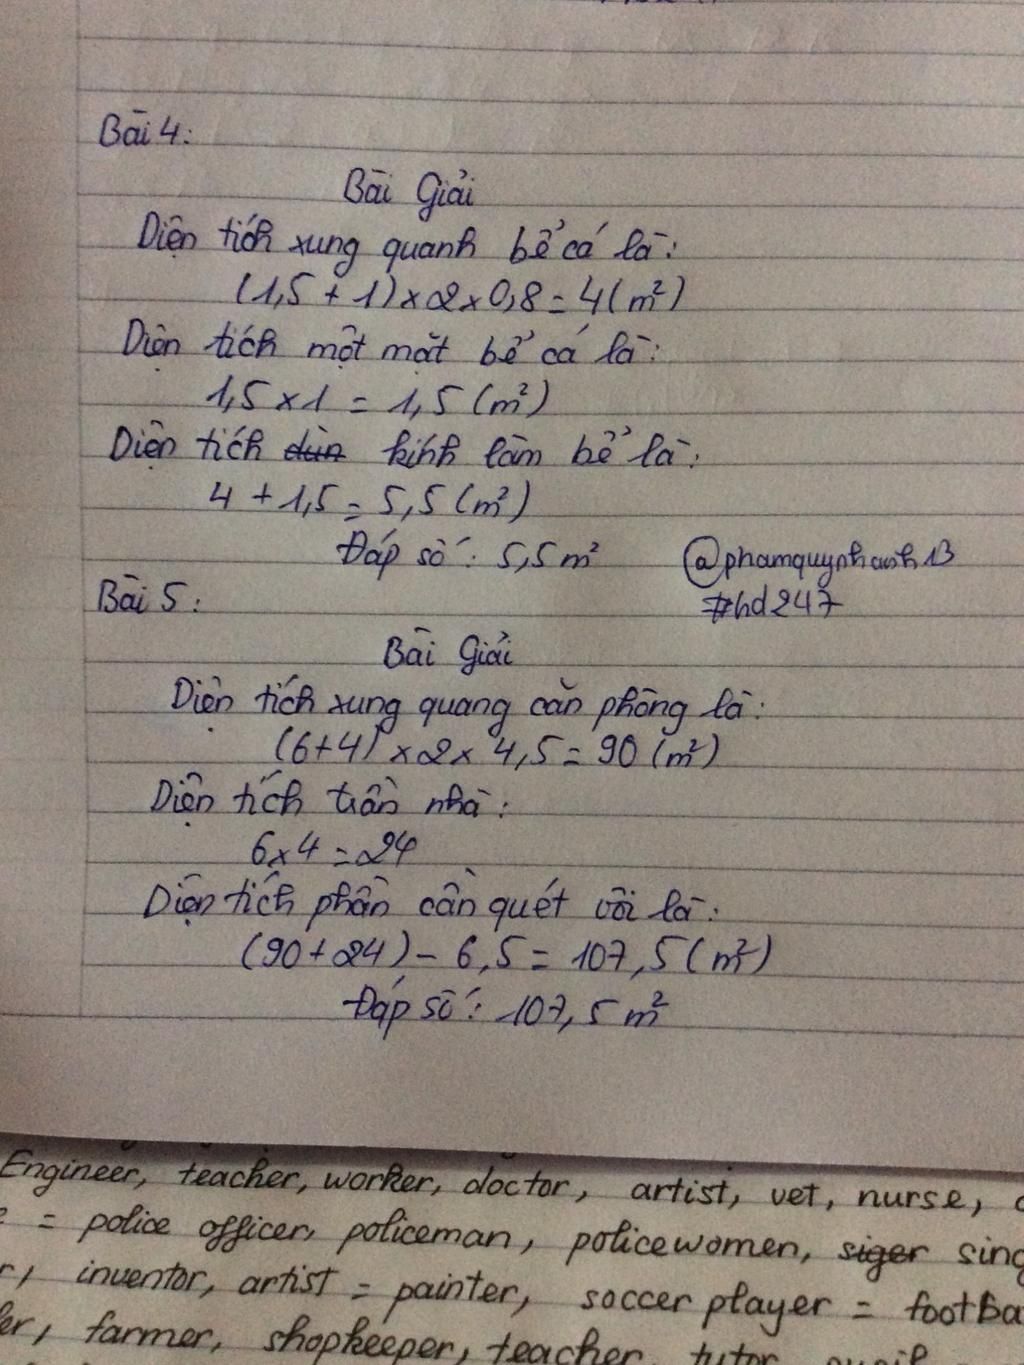 Bài 4:
Bài Giải
Diện tích xung quanh bể cá là:
(1,5 + 1) x 2 x 0,8 = 4 (m²)
Diện tích một mặt bể cá là:
1,5 x 1 = 1,5 (m²)
Diện tích dùn kính làm bể là:
4 + 1,5 = 5,5 (m²)
Đáp số: 5,5 m²
@phamquynhanh13
#hd247
Bài 5:
Bài Giải
Diện tích xung quang căn phòng là:
(6+4) x 2 x 4,5 = 90 (m²)
Diện tích trần nhà:
6 x 4 = 24
Diện tích phần cần quét vôi là:
(90 + 24) - 6,5 = 107,5 (m²)
Đáp số: 107,5 m²
Engineer, teacher, worker, doctor, artist, vet, nurse,
= police officer, policeman, policewomen, siger sing
r, inventor, artist = painter, soccer player = footba
ler, farmer, shopkeeper, teacher, tutor